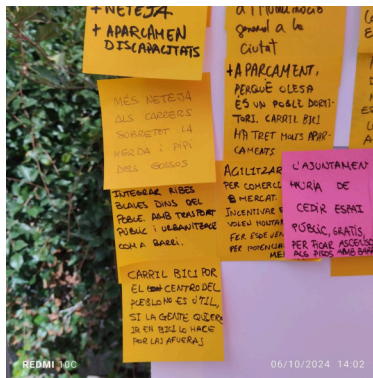 + NETEJA
+ APARCAMEN
DISCAPACITATS
MÉS NETEJA
ALS CARRERS
SOBRETOT LA
MERDA I PIPI
DELS GOSSOS
INTEGRAR RIBES
BLAVES DINS DEL
POBLE AMB TRASPORT
PÚBLIC I URBANITZACIÓ
COM A BARRI.
CARRIL BICI POR
EL CENTRO DEL
PUEBLO NO ES ÚTIL,
SI LA GENTE QUIERE
IR EN BICI LO HACE
POR LAS AFUERAS
general a la
Ciutat
+ APARCAMENT,
PERQUÈ OLESA
ÉS UN POBLE DORMI-
TORI. CARRIL BICI
HA TRET MOLTS APAR-
CAMENTS
AGILITZAR
PER COMERÇ
MERCAT.
INCENTIVAR E
VOLEN MUNTA
FER ESDEVEN
PER POTENCIA
L'AJUNTAMEN
HURIA DE
CEDIR ESPAI
PÚBLIC, GRATIS,
PER FICAR ASCENSO
ALS PISOS AMB BARR
REDMI 10C
06/10/2024 14:02